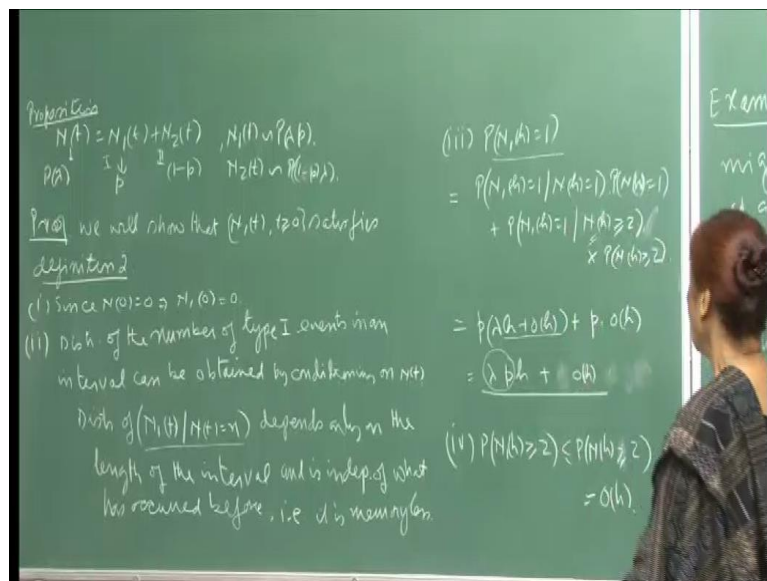 Proposition
N(t) = N₁(t) + N₂(t) , N₁(t) ~ P(λp).
P(λ) I ↓ p II (1-p) N₂(t) ~ P((1-p)λ).
Proof we will show that {N₁(t), t≥0} satisfies
definition 2
(i) Since N(0)=0 ⇒ N₁(0)=0.
(ii) Distr. of the number of type I events in an
interval can be obtained by conditioning on N(t)
Distr of (N₁(t) / N(t)=n) depends only on the
length of the interval and is indep. of what
has occurred before, i.e it is memoryless.
(iii) P(N₁(h)=1)
= P(N₁(h)=1 / N(h)=1) P(N(h)=1)
+ P(N₁(h)=1 / N(h)≥2)
× P(N(h)≥2)
= p(λh + o(h)) + p. o(h)
= λ p h + o(h)
(iv) P(N₁(h)≥2) ≤ P(N(h)≥2)
= o(h).
Exam
mig